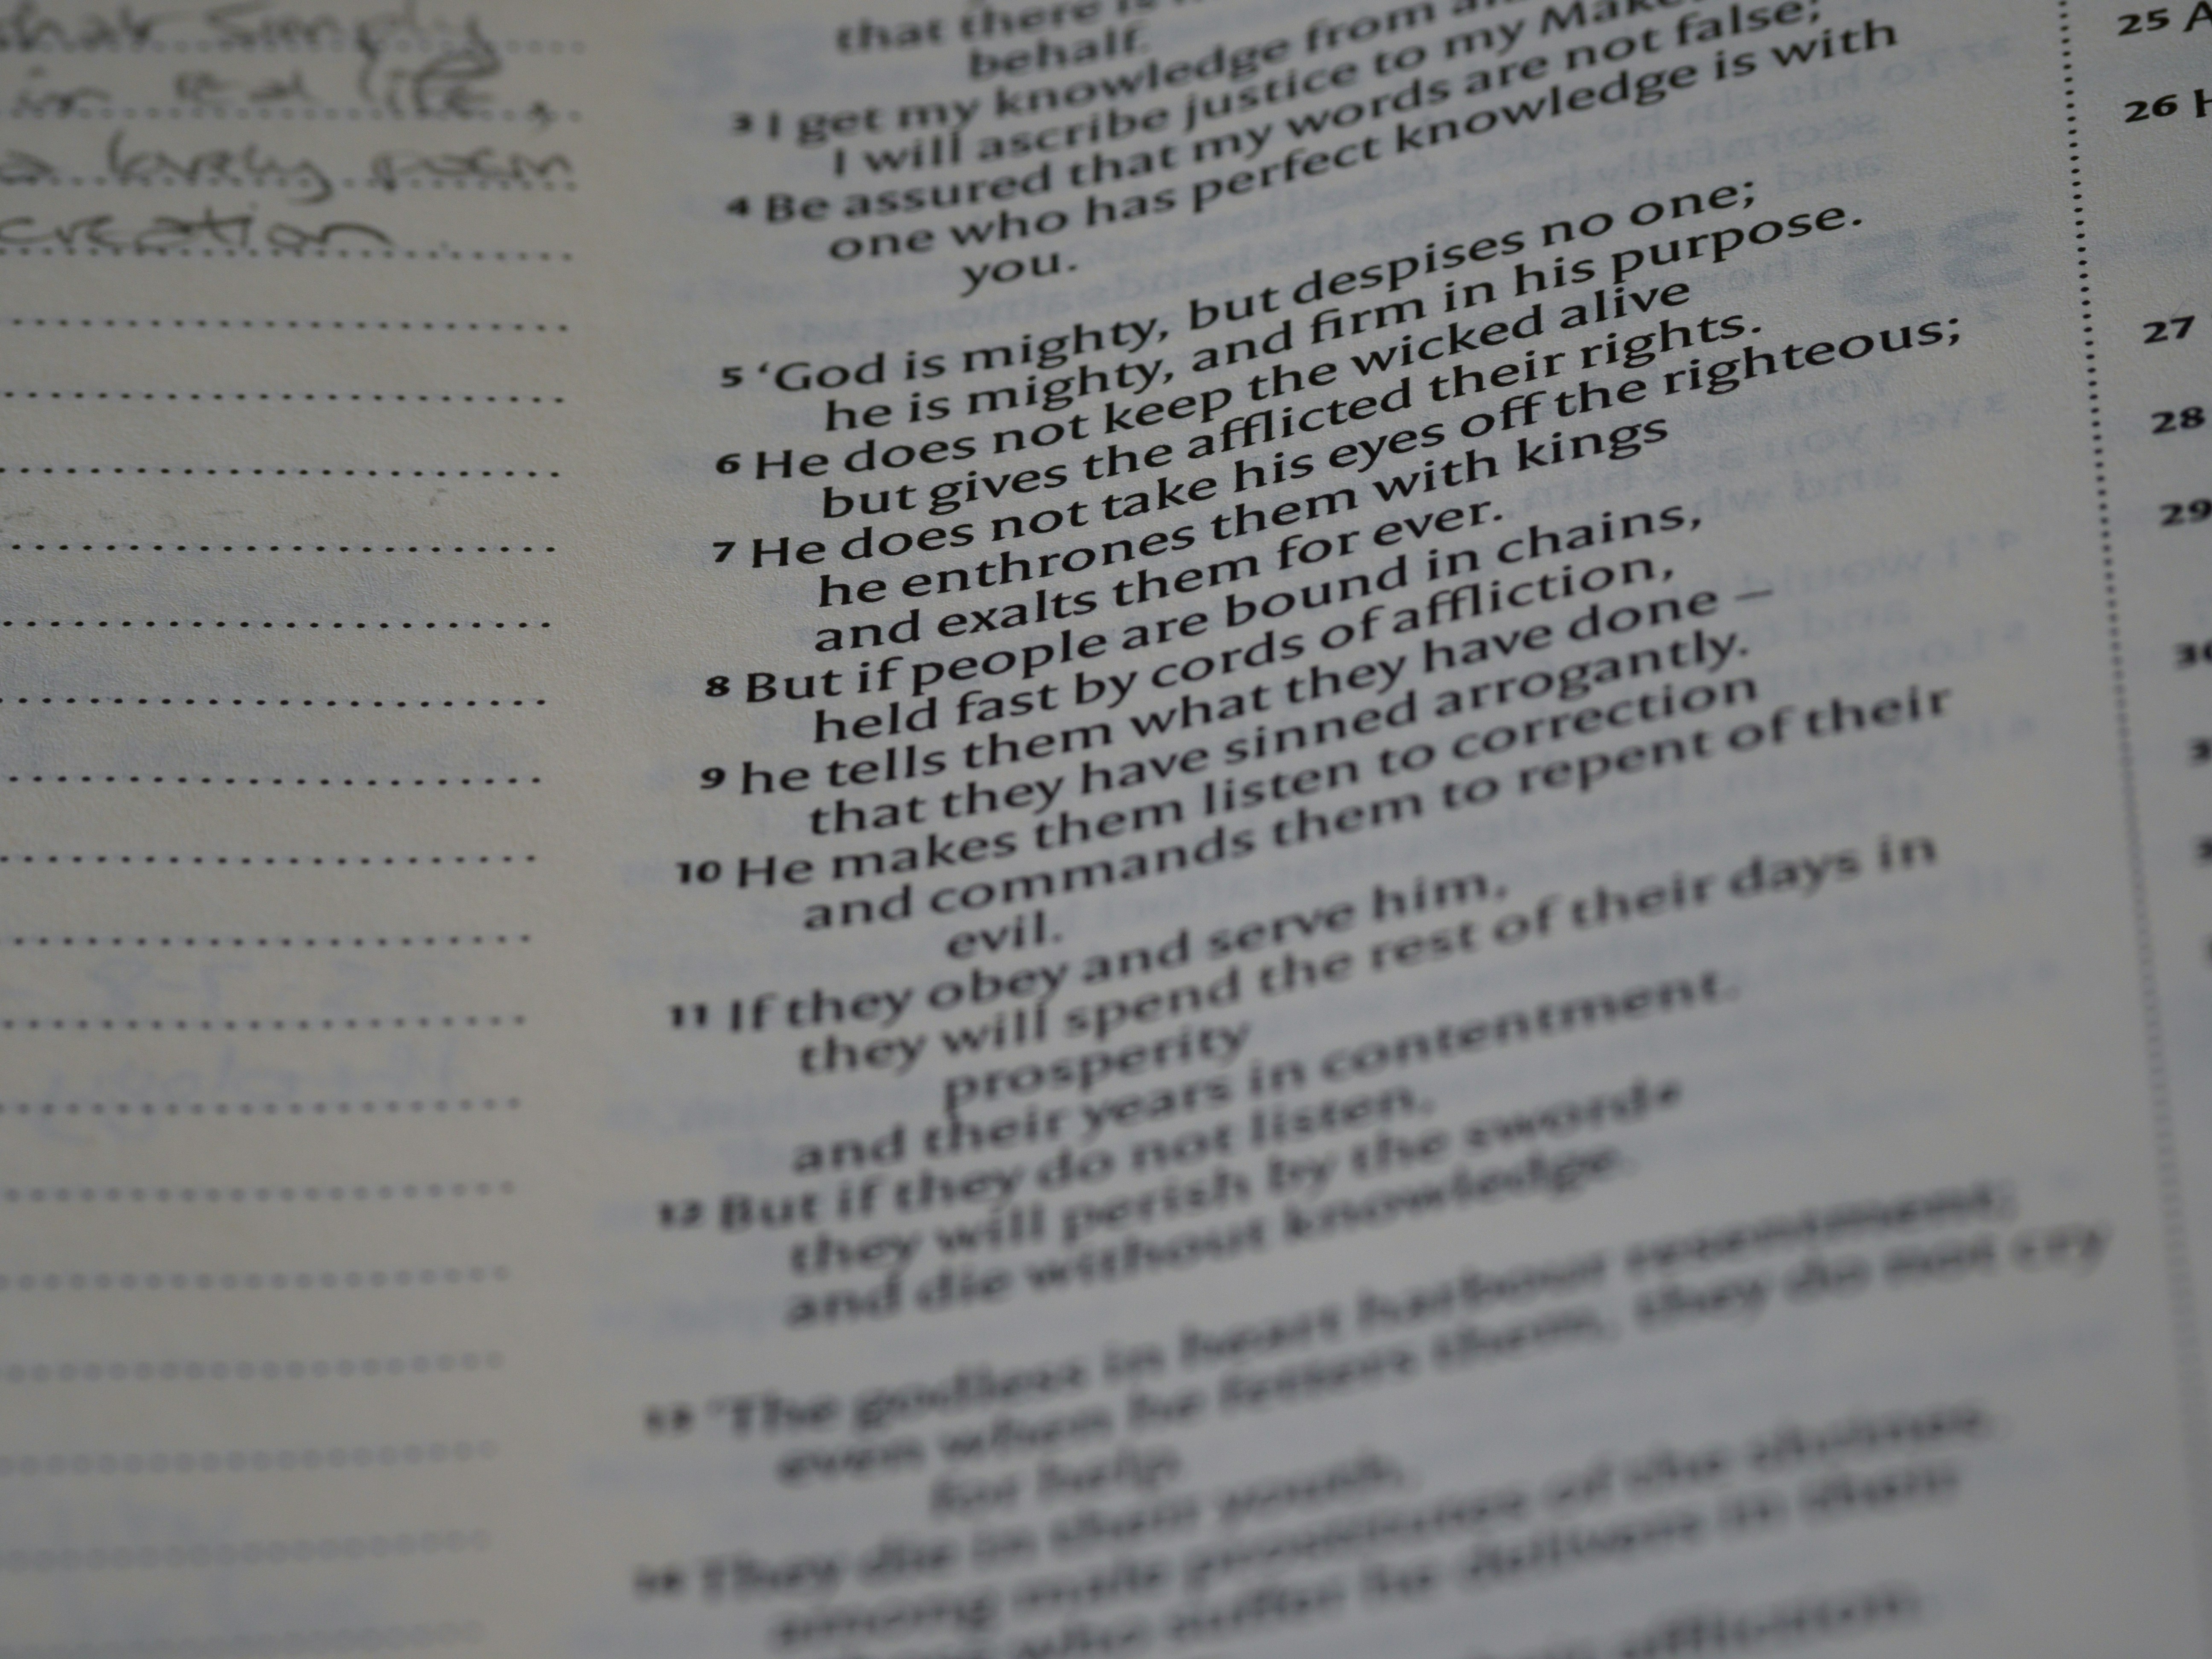 simply
in real life,
a lovely poem
creation
that there is
behalf.
3 I get my knowledge from
I will ascribe justice to my
4 Be assured that my words are not false;
one who has perfect knowledge is with
you.
5 ‘God is mighty, but despises no one;
he is mighty, and firm in his purpose.
6 He does not keep the wicked alive
but gives the afflicted their rights.
7 He does not take his eyes off the righteous;
he enthrones them with kings
and exalts them for ever.
8 But if people are bound in chains,
held fast by cords of affliction,
9 he tells them what they have done –
that they have sinned arrogantly.
10 He makes them listen to correction
and commands them to repent of their
evil.
11 If they obey and serve him,
they will spend the rest of their days in
prosperity
and their years in contentment.
12 But if they do not listen,
they will perish by the sword
and die without knowledge.
13 ‘The godless in heart harbour resentment;
even when he fetters them, they do not cry
for help.
14 They die in their youth,
among male prostitutes of the shrines.
who suffer he delivers in their
affliction
25
26
27
28
29
30